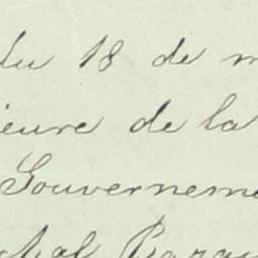 du 18 de m
ieure de la
Gouverneme
chal Bazai